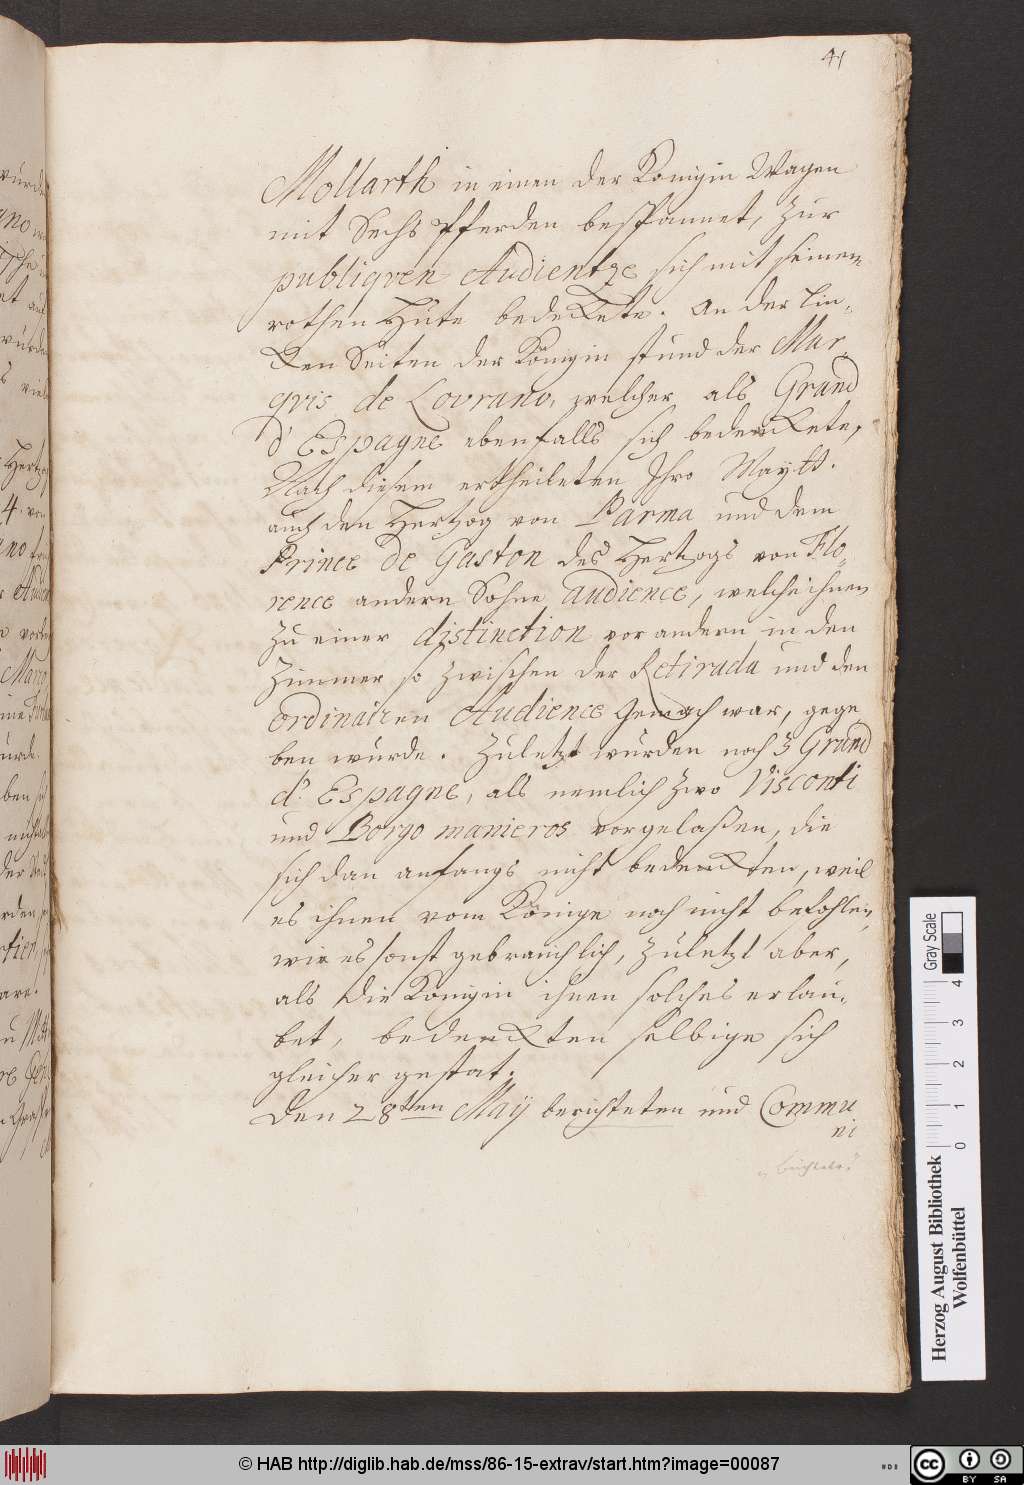 41
Mollarth in einen der Königin Wagen
mit Sechs Pferden bespannet, zur
publiqven Audientze sich mit seinem
rothen Hüte bedeckete. An der lin-
cken Seiten der Königin stund der Mar-
qvis de Lovrano, welcher als Grand
d'Espagne ebenfalls sich bedeckete,
Nach diesem ertheileten Ihro Maytt.
auch den Hertzog von Parma und dem
Prince de Gaston des Hertzogs von Flo-
rence andern Sohne audience, welche ihnen
zu einer distinction vor andern in den
Zimmer so zwischen der Retirada und den
ordinairen Audience Gemach war, gege
ben würde. Zuletzt würden noch 3 Grand
d'Espagne, als nemlich zwo Visconti
und Borgo manieros vorgelaßen, die
sich dan anfangs nicht bedeckten, weil
es ihnen vom Könige noch nicht befohlen,
wie es sonst gebräuchlich, zuletzt aber,
als die Königin ihnen solches erlau-
bet, bedeckten selbige sich
gleicher gestat.
Den 28ten Maÿ berichteten und Commu
ni
Herzog August Bibliothek
Wolfenbüttel
Gray Scale
0 1 2 3 4
© HAB http://diglib.hab.de/mss/86-15-extrav/start.htm?image=00087
cc BY SA